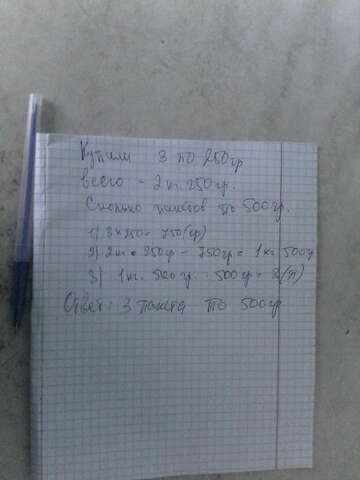 Купили 3 по 250гр
всего - 2кг. 250гр.
Сколько пакетов по 500гр.
1) 3×250=750(гр)
2) 2кг 250гр - 750гр = 1кг 500гр
3) 1кг. 500гр : 500гр = 3(п)
Ответ: 3 пакета по 500гр